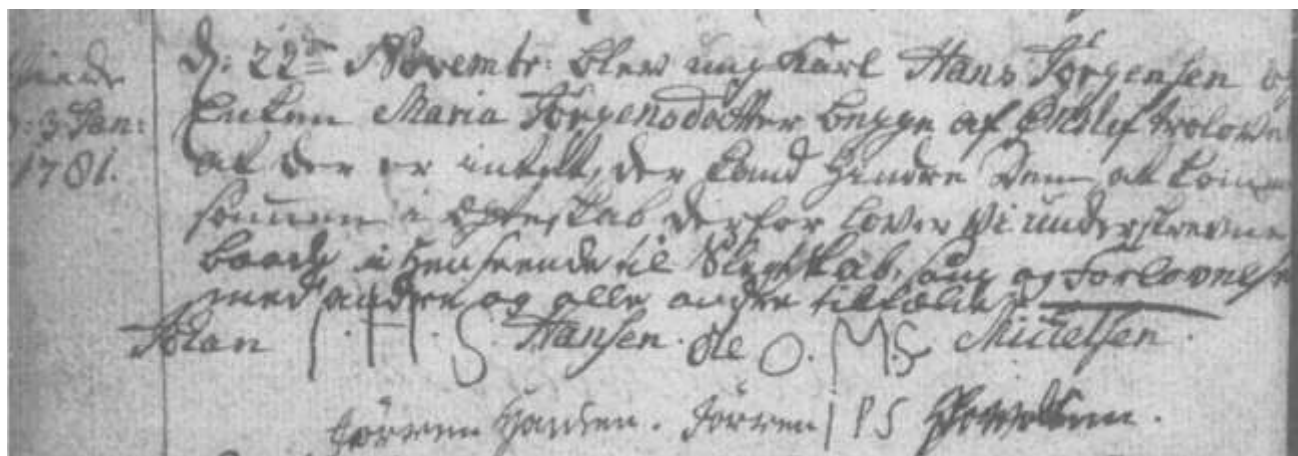 Viede
d: 3 Jan:
1781.
d: 22de Novembr: blev ung Karl Hans Jörgensen og
Enken Maria Jörgensdotter begge af trolovet
at der er intet, der kand hindre dem at komme
sammen i Ægteskab, derfor lover vi underskrevne
baade i henseende til Slegtskab, som og Forlovelse
med andre og alle andre tilfælde.
Johan J. H. S. Hansen. Ole O. M. S. Michelsen.
Jörren Hansen. Jörren I P S